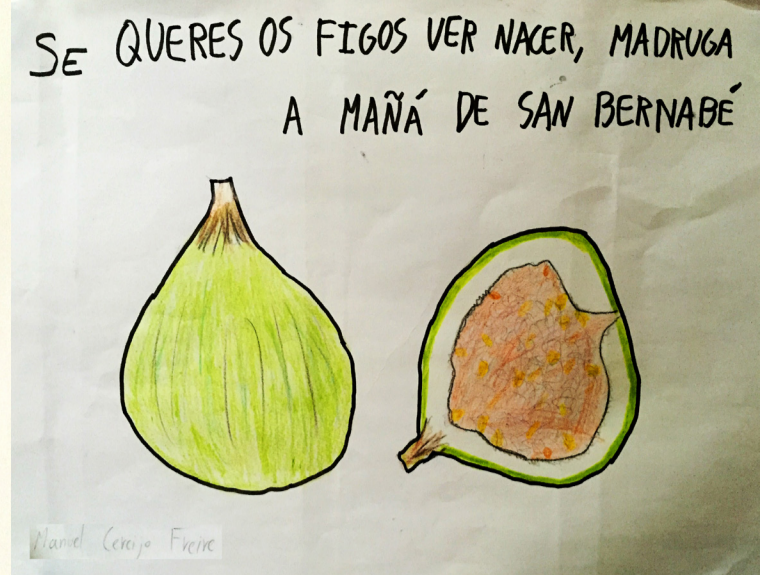 SE QUERES OS FIGOS VER NACER, MADRUGA
A MAÑÁ DE SAN BERNABÉ
Manuel Cereijo Freire